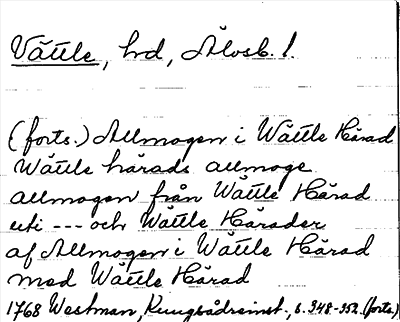 Vättle, hd, Älvsb. l.
(forts.) Allmogen i Wättle Härad
Wättle härads allmoge
allmogen från Wättle Härad
uti --- och Wättle Härader
af Allmogen i Wättle Härad
med Wättle Härad
1768 Westman, s. 348-352. (forts.)